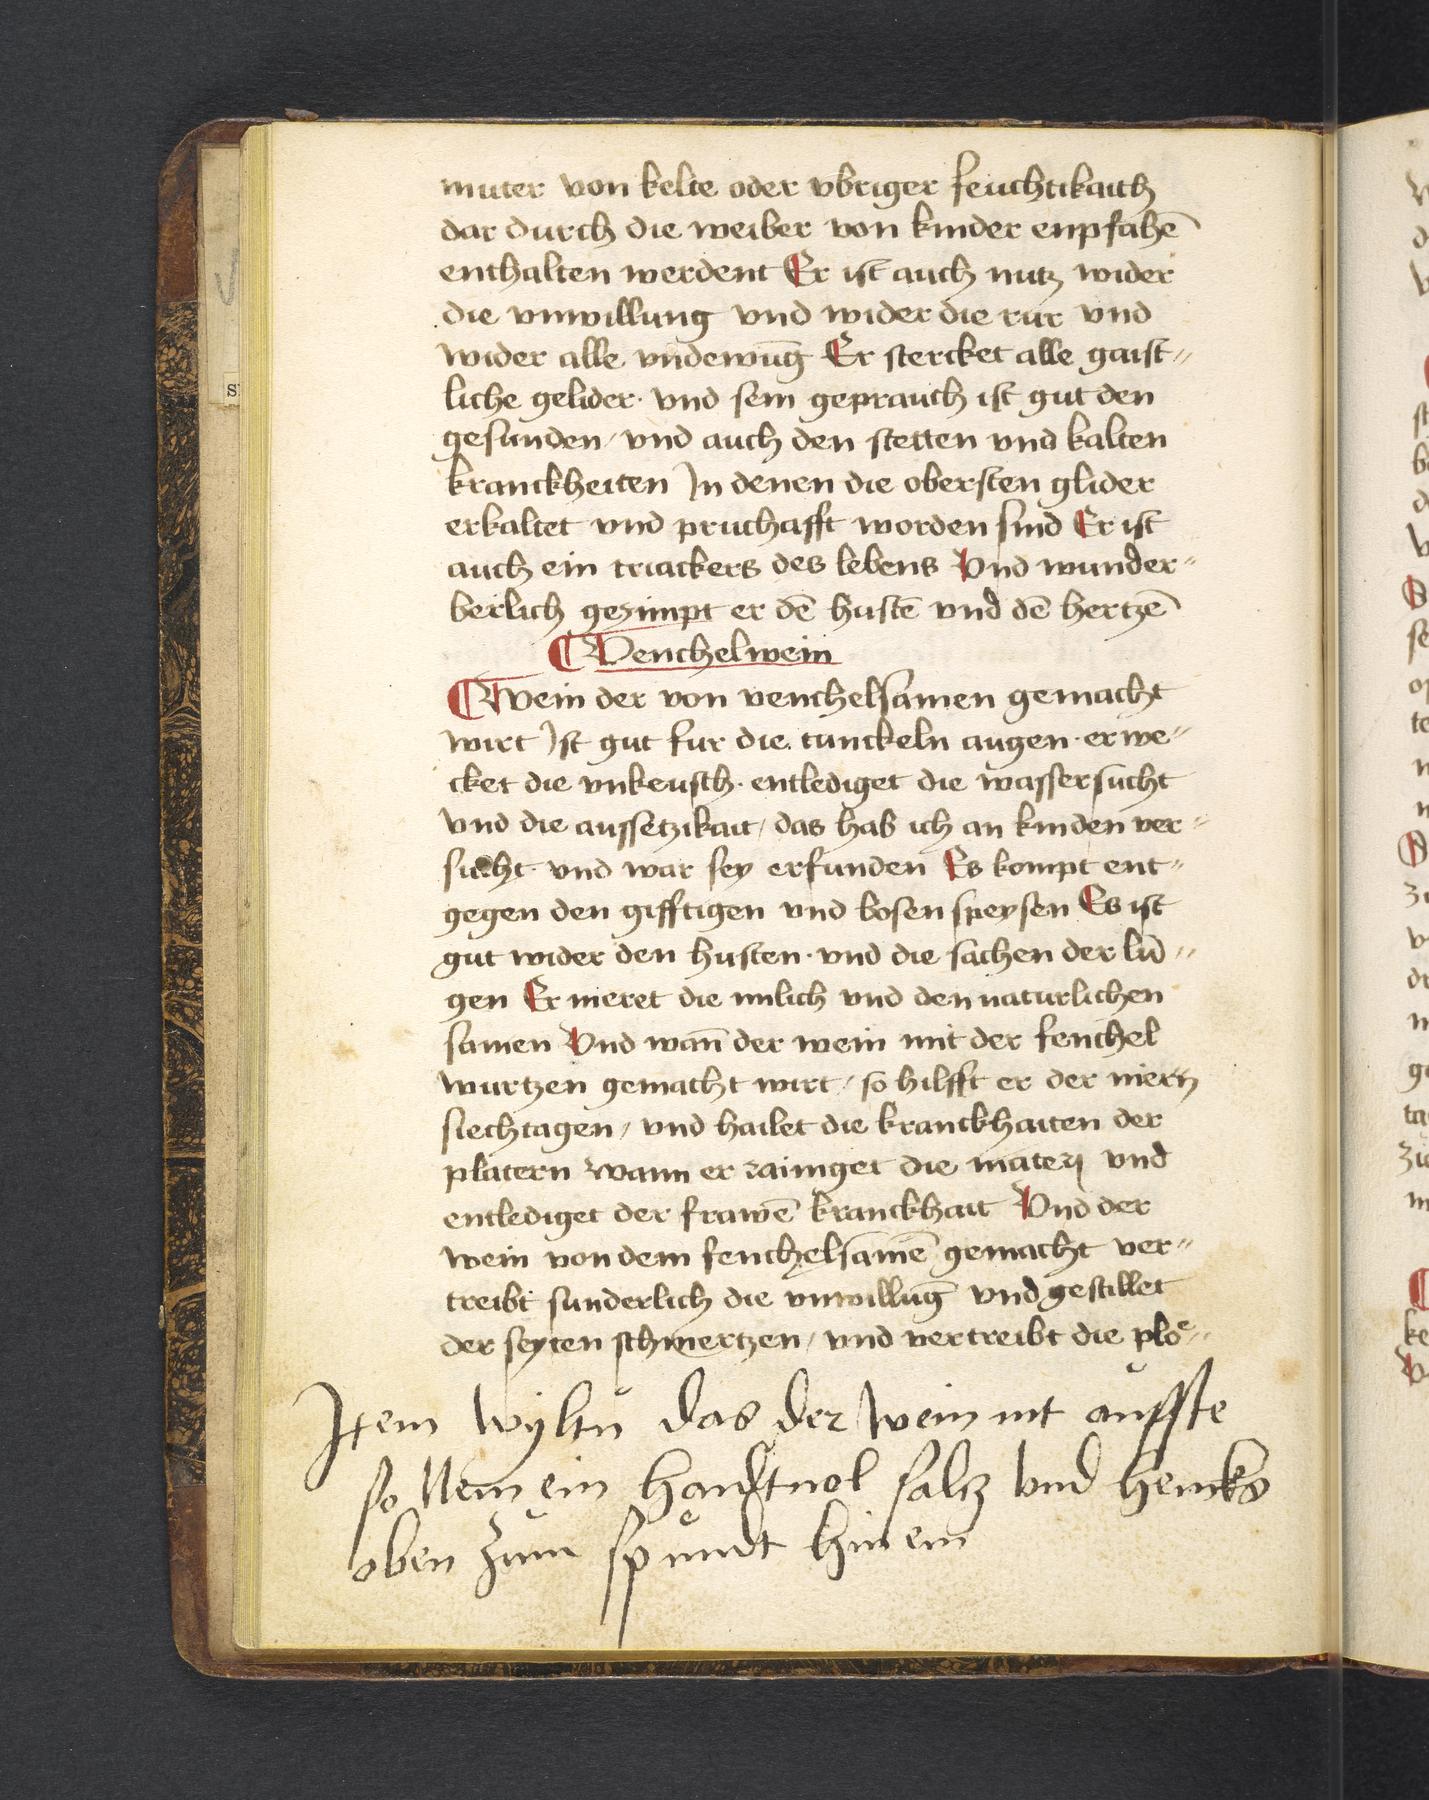 muter von kelte oder vbriger feuchtikaith
dar durch die weiber von kinder enpfahē
enthalten werdent Er ist auch nutz wider
die vnwillung vnd wider die rur vnd
wider alle vndewūg Er stercket alle gaist⸗
liche gelider· vnd sein geprauch ist gut den
gesunden / vnd auch den stetten vnd kalten
kranckheiten In denen die obersten glider
erkaltet vnd pruchafft worden sind Er ist
auch ein triackers des lebens Vnd wunder⸗
berlich gezimpt er dē hustē vnd dē hertzē
¶ Venchelwein
¶ Wein der von venchelsamen gemacht
wirt Ist gut fur die tunckeln augen· erwe⸗
cket die vnkeusch· entlediget die wassersucht
vnd die aussetzikait / das hab ich an kinden ver⸗
sucht· vnd war sey erfunden Es kompt ent⸗
gegen den gifftigen vnd bosen speysen Es ist
gut wider den husten· vnd die sachen der lū⸗
gen Er meret die milich vnd den naturlichen
samen Vnd wan̄ der wein mit der fenchel
wurtzen gemacht wirt / so hilfft er der niern
siechtagen / vnd hailet die kranckhaiten der
platern wann er rainiget die materj vnd
entlediget der frawē kranckhait Vnd der
wein von dem fenchelsamē gemacht ver⸗
treibt sunderlich die vnwillūg vnd gestillet
der seyten schmertzen / vnd vertreibt die plͦo⸗
Item wyltu das der wein nit auffste
so Nem ein handtuol saltz vnd hencks
oben zum spundt hin ein